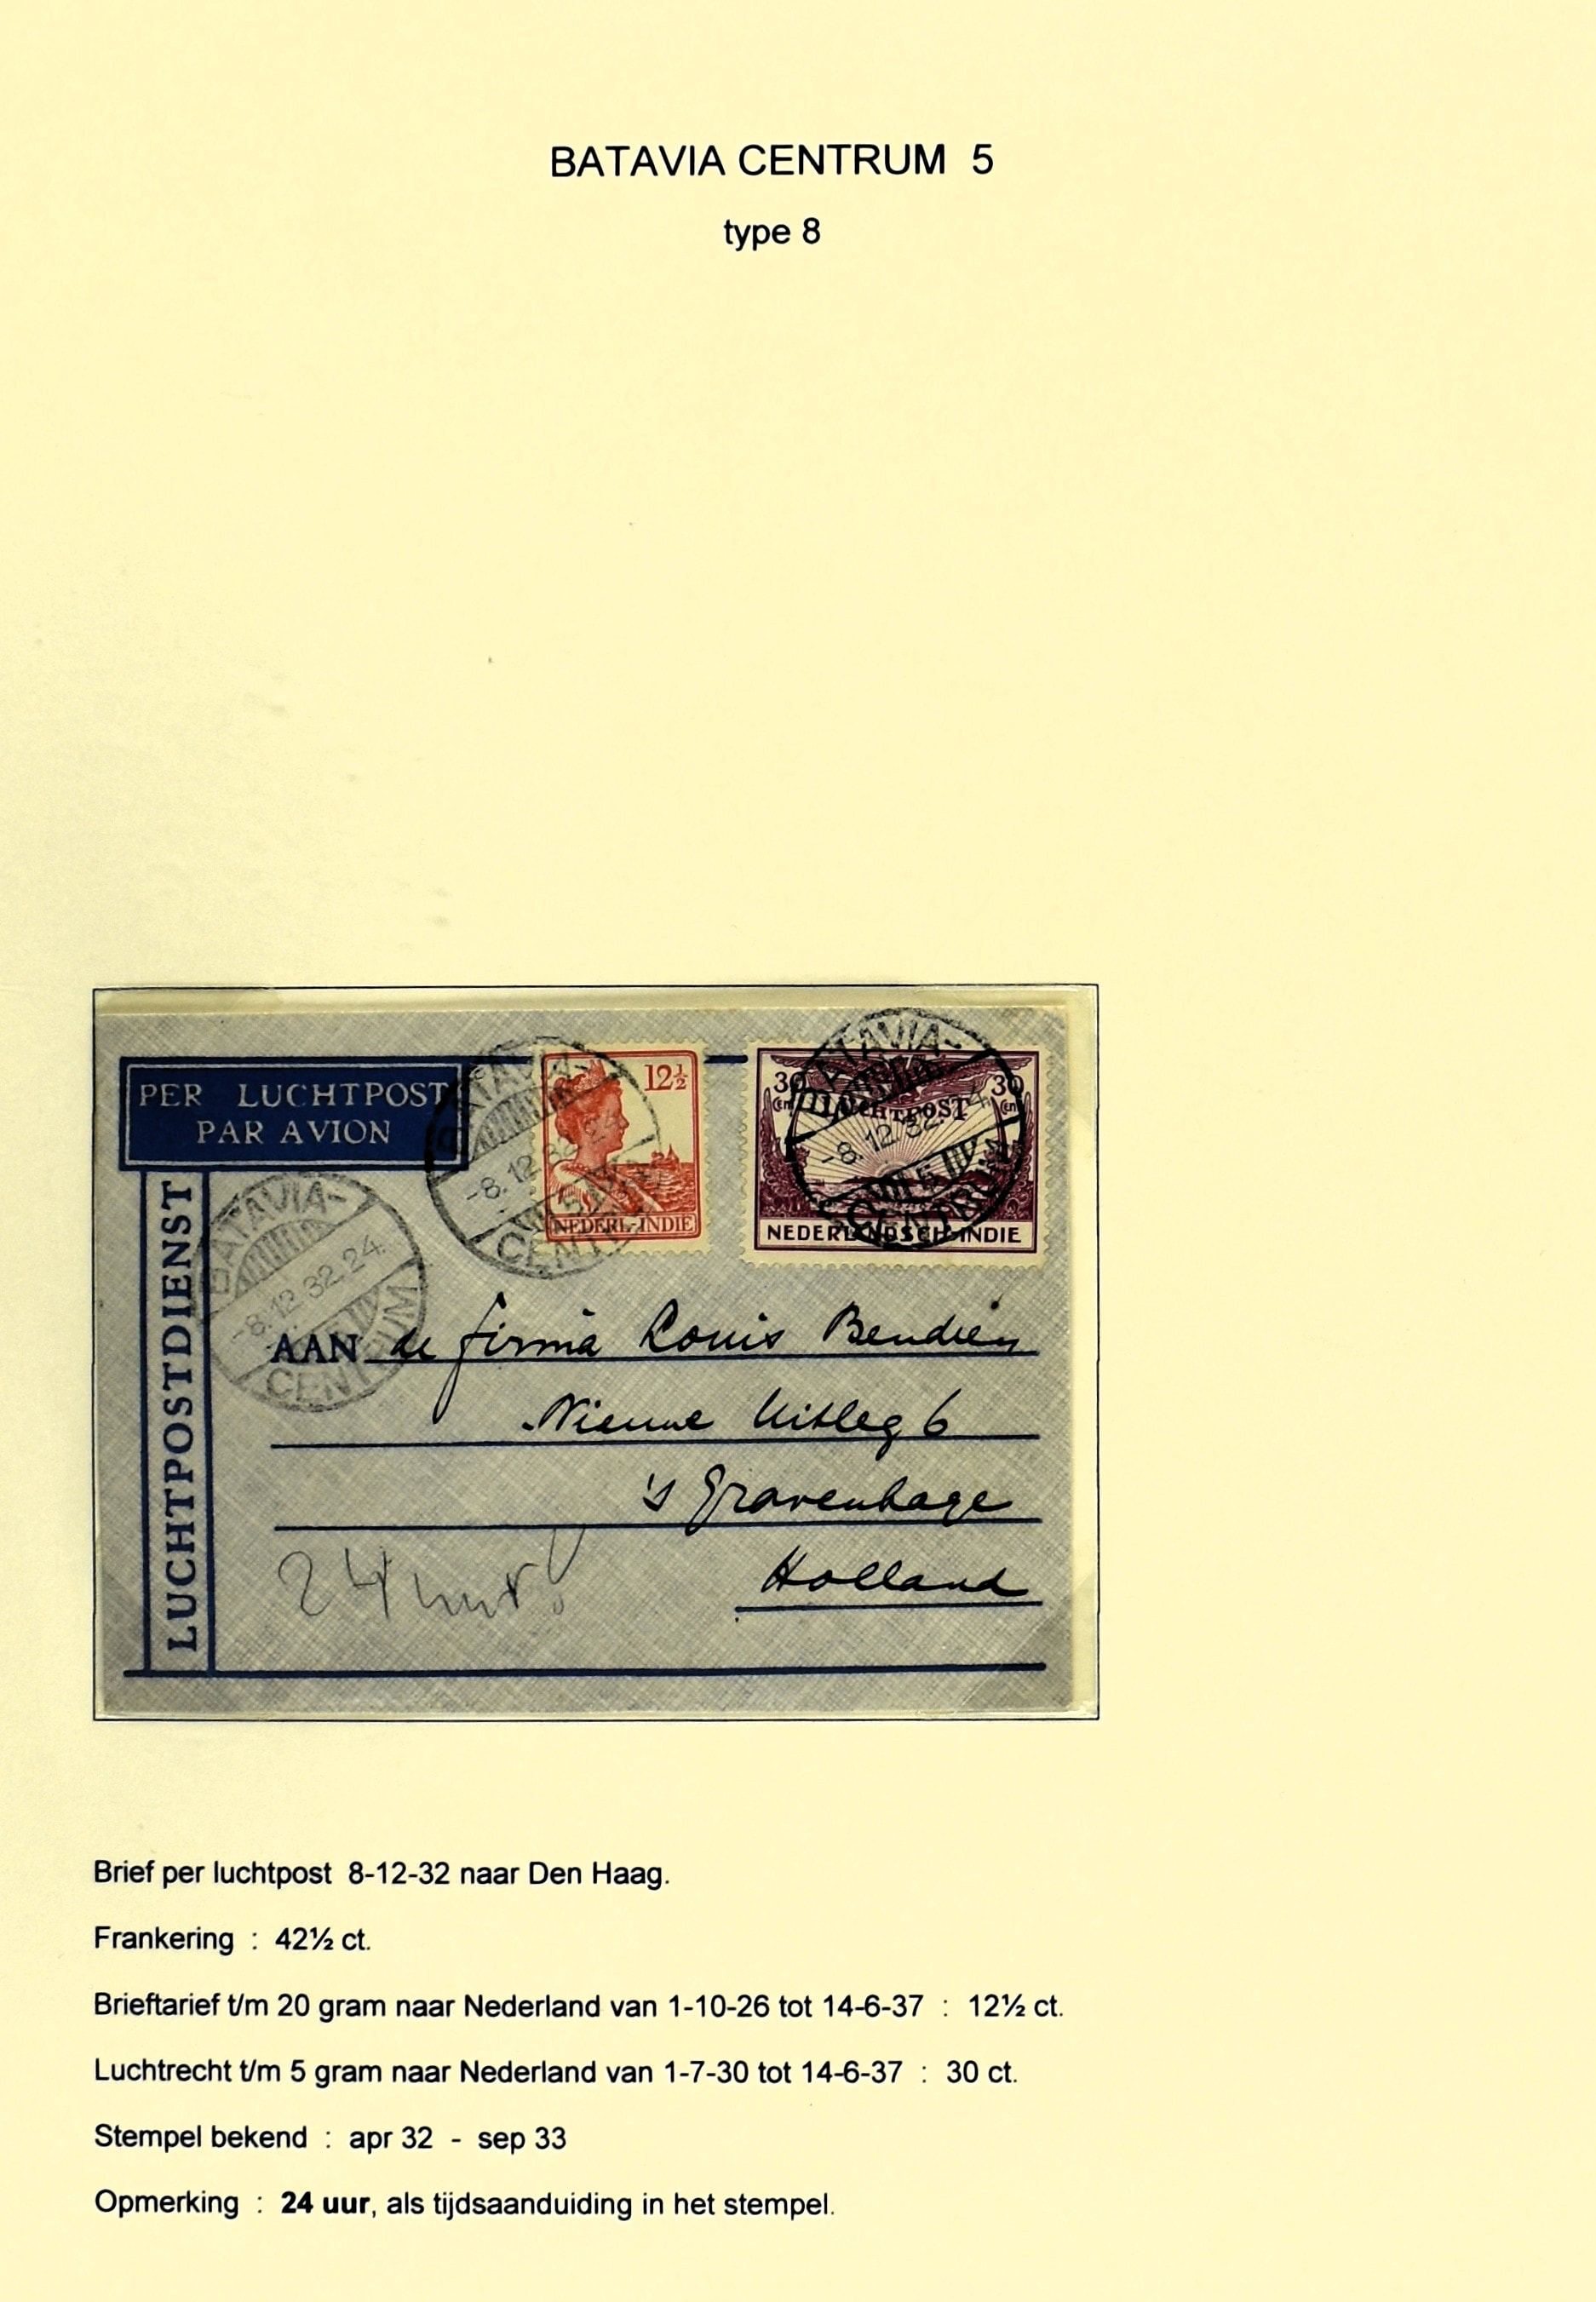 BATAVIA CENTRUM 5
type 8
PER LUCHTPOST
PAR AVION
LUCHTPOSTDIENST
BATAVIA-
-8.12.32.24.
CENTRUM
BATAVIA-
-8.12.32.24
CENTRUM
12½
NEDERL-INDIE
BATAVIA-
-8.12.32. 4
5
CENTRUM
30 30
Cent Cent
LUCHTPOST
NEDERLANDSCH-INDIE
AAN de firma Louis Bendien
Nieuwe Uitleg 6
's Gravenhage
Holland
24 uur!
Brief per luchtpost 8-12-32 naar Den Haag.
Frankering : 42½ ct.
Brieftarief t/m 20 gram naar Nederland van 1-10-26 tot 14-6-37 : 12½ ct.
Luchtrecht t/m 5 gram naar Nederland van 1-7-30 tot 14-6-37 : 30 ct.
Stempel bekend : apr 32 - sep 33
Opmerking : 24 uur, als tijdsaanduiding in het stempel.